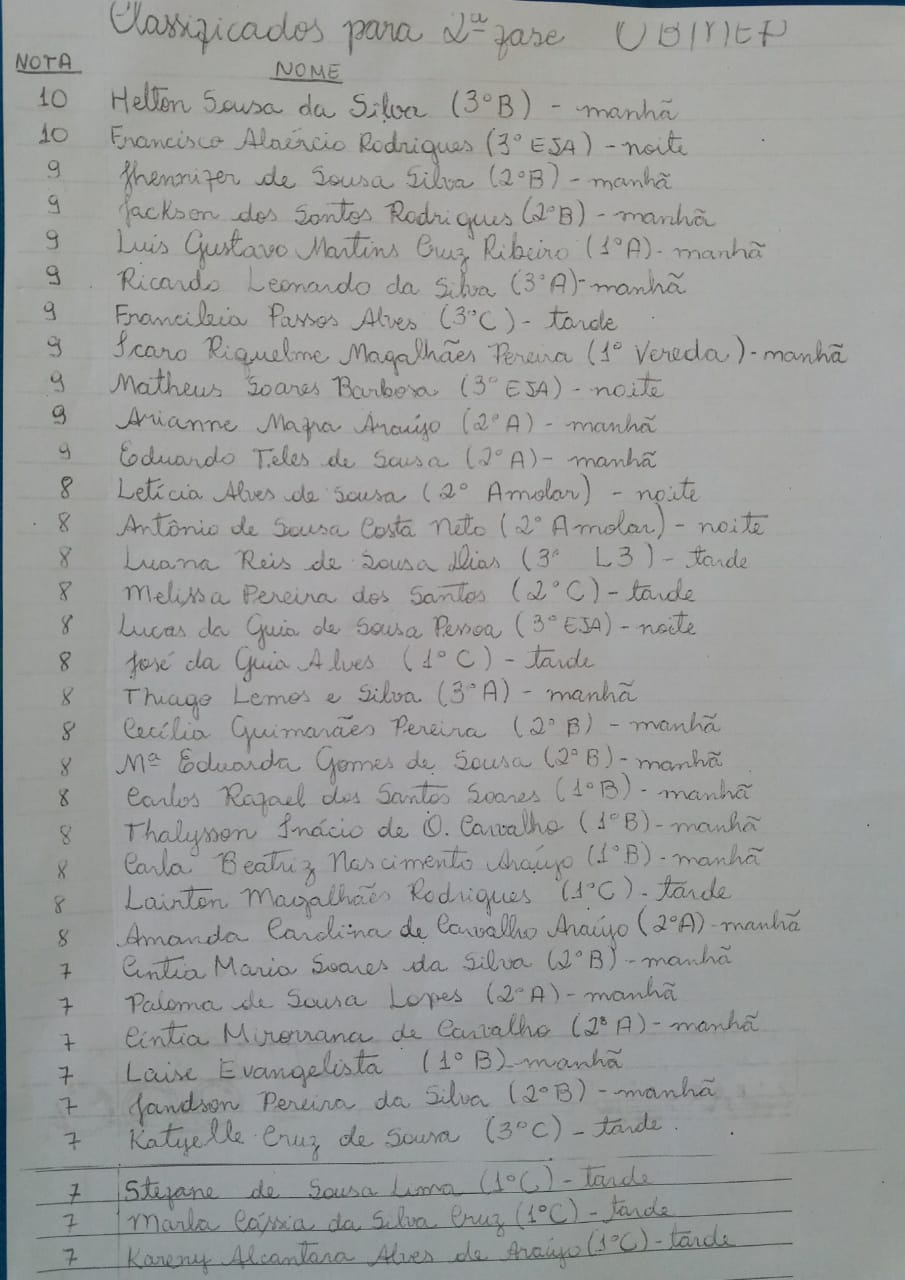 Classificados para 2ª fase OBMEP
NOTA NOME
10 Helton Sousa da Silva (3º B) - manhã
10 Francisco Alaércio Rodrigues (3º EJA) - noite
9 Jhennifer de Sousa Silva (2º B) - manhã
9 Jackson dos Santos Rodrigues (2º B) - manhã
9 Luis Gustavo Martins Cruz Ribeiro (1º A) - manhã
9 Ricardo Leonardo da Silva (3º A) - manhã
9 Francileia Passos Alves (3º C) - tarde
9 Icaro Riquelme Magalhães Pereira (1º Vereda) - manhã
9 Matheus Soares Barbosa (3º EJA) - noite
9 Arianne Mayra Araújo (2º A) - manhã
9 Eduardo Teles de Sousa (2º A) - manhã
8 Letícia Alves de Sousa (2º Amolar) - noite
8 Antônio de Sousa Costa Neto (2º Amolar) - noite
8 Luana Reis de Sousa Dias (3º L3) - tarde
8 Melissa Pereira dos Santos (2º C) - tarde
8 Lucas da Guia de Sousa Pessoa (3º EJA) - noite
8 José da Guia Alves (1º C) - tarde
8 Thiago Lemos e Silva (3º A) - manhã
8 Cecília Guimarães Pereira (2º B) - manhã
8 Mª Eduarda Gomes de Sousa (2º B) - manhã
8 Carlos Rafael dos Santos Soares (1º B) - manhã
8 Thalysson Inácio de O. Carvalho (1º B) - manhã
8 Carla Beatriz Nascimento Araújo (1º B) - manhã
8 Lairton Magalhães Rodrigues (1º C) - tarde
8 Amanda Carolina de Carvalho Araújo (2º A) - manhã
7 Cintia Maria Soares da Silva (2º B) - manhã
7 Paloma de Sousa Lopes (2º A) - manhã
7 Cintia de Carvalho (2º A) - manhã
7 Laise Evangelista (1º B) - manhã
7 Jandson Pereira da Silva (2º B) - manhã
7 Katyelle Cruz de Sousa (3º C) - tarde.
7 Stefane de Sousa Lima (1º C) - tarde
7 Marla Cássia da Silva Cruz (1º C) - tarde
7 Kareny Alcantara Alves de Araújo (1º C) - tarde